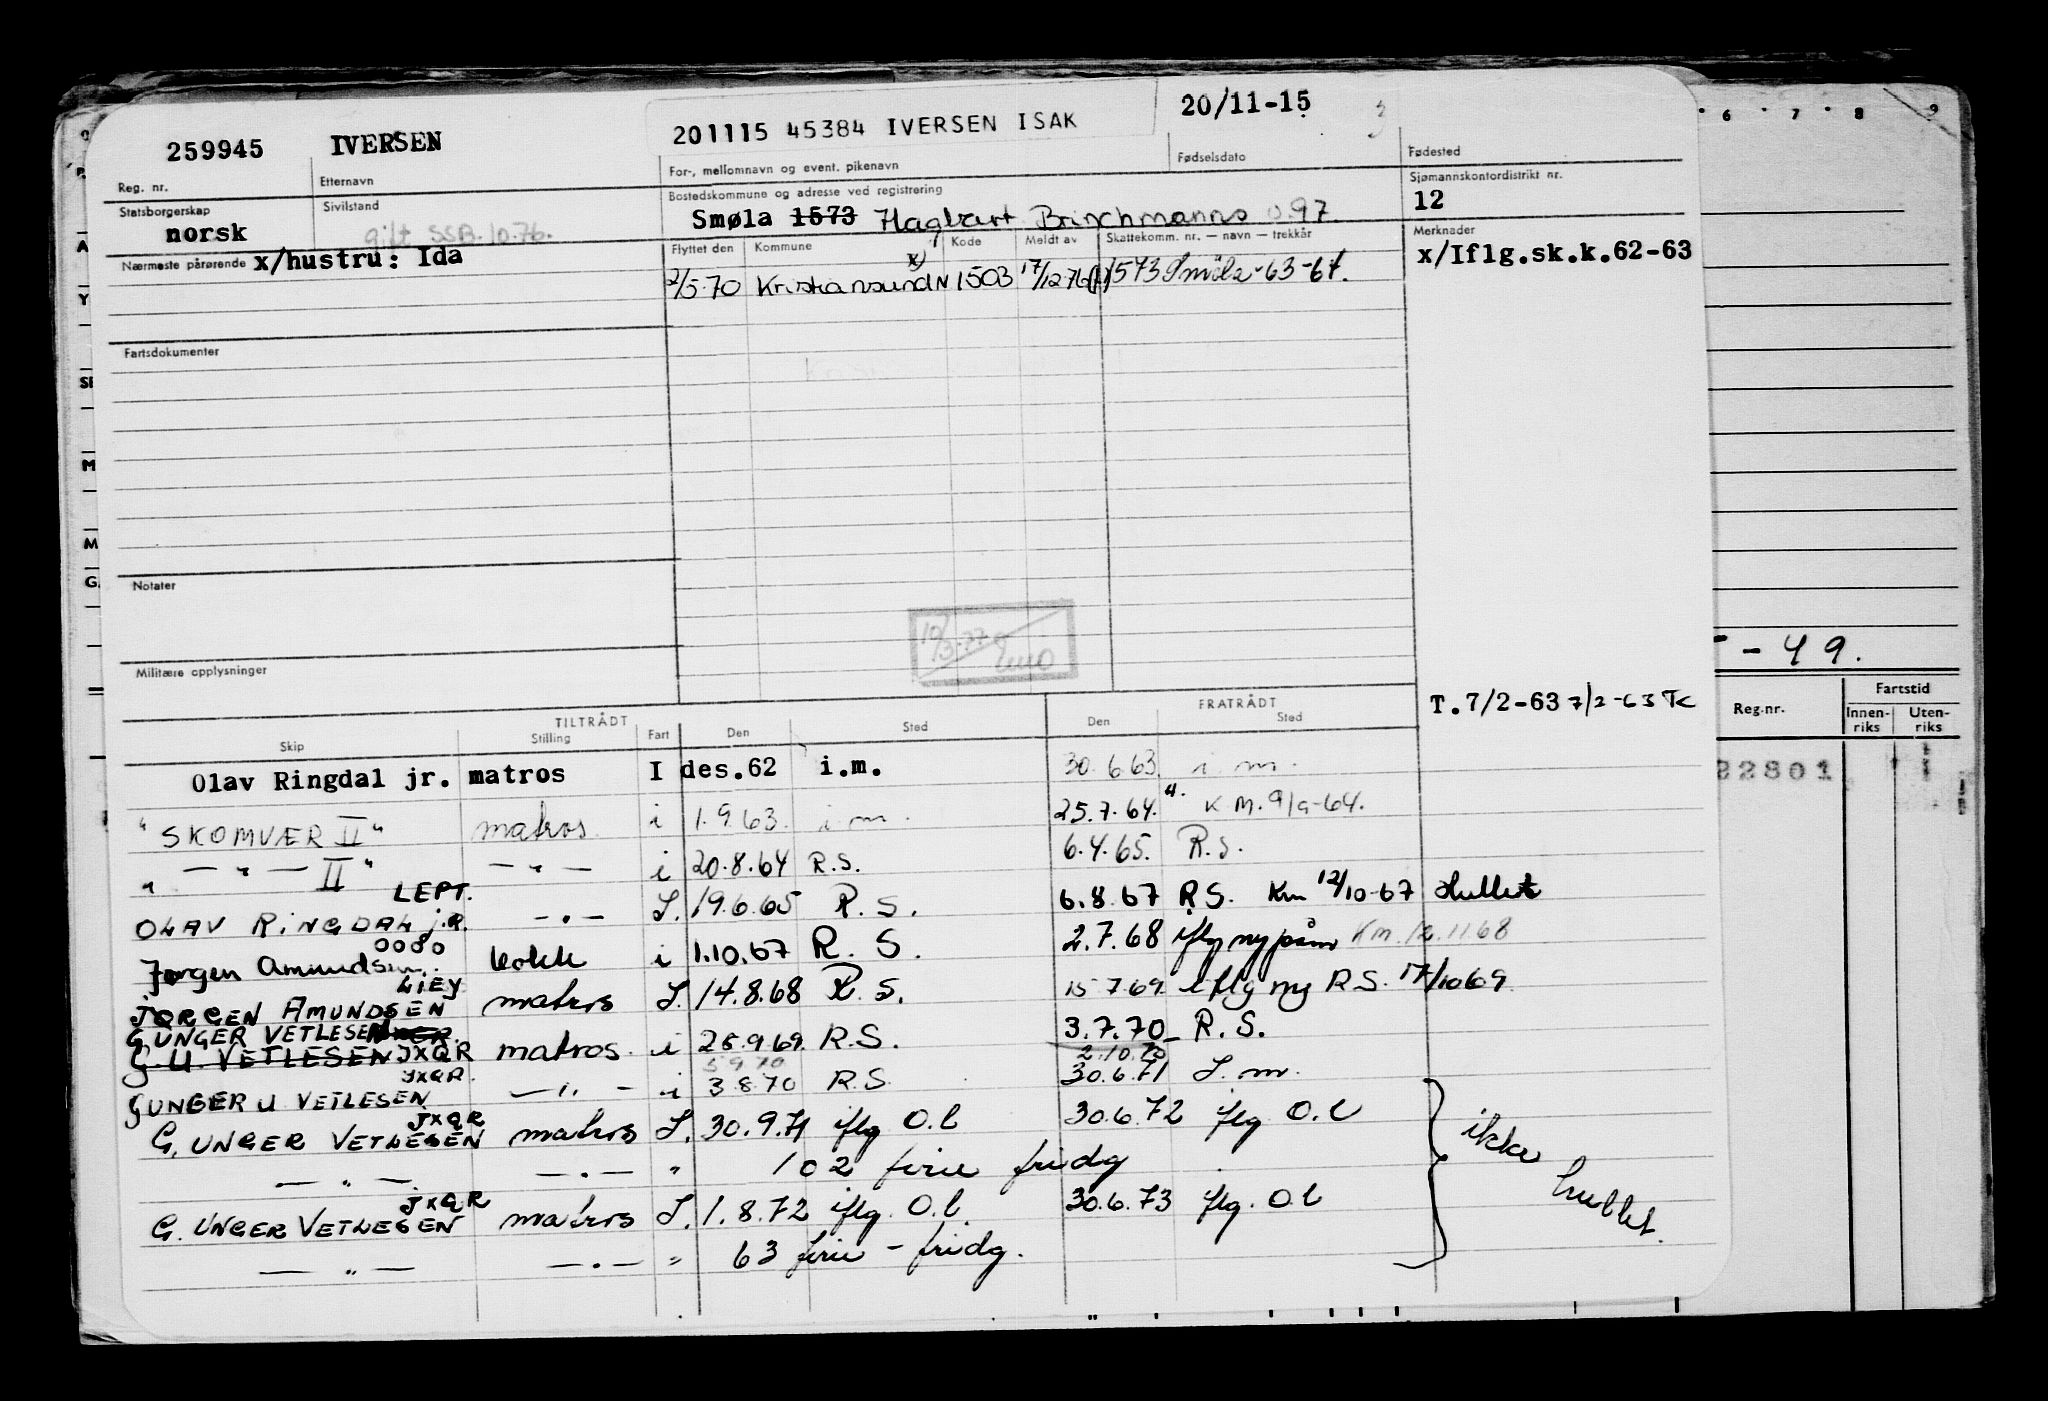 259945 IVERSEN 201115 45384 IVERSEN ISAK 20/11-15
Reg. nr. Etternavn For-, mellomnavn og event. pikenavn Fødselsdato Fødested
Statsborgerskap Sivilstand Bostedskommune og adresse ved registrering Sjømannskontordistrikt nr.
norsk gift SSB.10.76. Smøla 1573 Hagbart Brinchmanns v.97 12
Nærmeste pårørende x/hustru: Ida Flyttet den Kommune Kode Meldt av Skattekomm. nr. — navn — trekkår Merknader
x/Iflg.sk.k.62-63
2/5.70 Kristiansund N x) 1503 17/12.76 1573 Smöla-63-64.
Fartsdokumenter
Notater
Militære opplysninger
- 49.
T.7/2-63 7/2-63
TILTRÅDT FRATRÅDT
Skip Stilling Fart Den Sted Den Sted
Reg.nr. Fartstid
Innen-riks Uten-riks
22801
Olav Ringdal jr. matros I des.62 i.m. 30.6.63 i.m.
"SKOMVÆR II" matros i 1.9.63. i m. 25.7.64. K M. 9/9-64.
" — " — II" — " — i 20.8.64 R.S. 6.4.65. R.S.
OLAV RINGDAL jR. LEPT. — " — I. 19.6.65 R.S. 6.8.67 R.S. Km 12/10-67 Hullet
Jørgen Amundsen kokk i 1.10.67 R.S. 2.7.68 iflg ny påm Km.12.11.68
JØRGEN AMUNDSEN LIEY matros I. 14.8.68 R.S. 15.7.69 iflg ny R.S. 17/10 69
G UNGER VETLESEN
G. U. VETLESEN JXQR matros. i 25.9.69. R.S. 3.7.70 R.S.
5 9 70 2.10.70
GUNGER U. VETLESEN JXQR. — " — i 3.8.70 R.S. 30.6.71 I.m.
G. UNGER VETLESEN JXQR matros I. 30.9.71 iflg O.l 30.6.72 iflg O.l
— " — — " — " 102 ferie fridg
G. UNGER VETLESEN JXQR matros I. 1.8.72 iflg. O.l. 30.6.73 iflg. O.l
— " — — " — " 63 ferie - fridg.
ikke hullet.